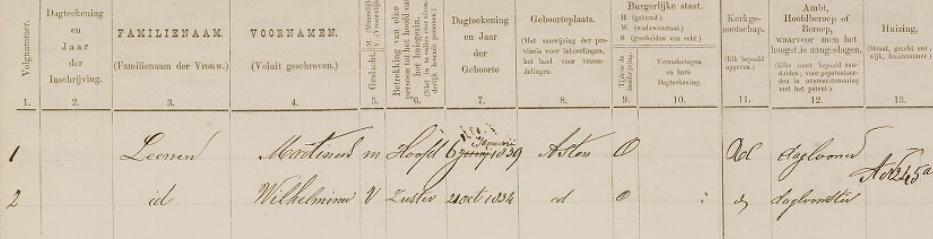 Volgnummer. Dagteekening en Jaar der Inschrijving. FAMILIENAAM. (Familienaam der Vrouw.) VOORNAMEN. (Voluit geschreven.) Geslacht. M (Mannelijk) V. (Vrouwelijk) Betrekking van elke persoon tot het hoofd van het huisgezin. Dagteekening en Jaar der Geboorte Geboorteplaats. (Met aanwijzing der provincie voor inboorlingen, het land voor vreemdelingen. Burgerlijke staat. H. (gehuwd) W. (weduwstaat.) S. (gescheiden van echt.) Tijdens de inschrijving. Veranderingen en hare Dagteekening. Kerkgenootschap. (Elk bepaald opgeven.) Ambt, Hoofdberoep of Beroep, waarvoor men het hoogst is aangeslagen. Huizing, (Straat, gracht enz., wijk, huisnummer.)
1. 2. 3. 4. 5. 6. 7. 8. 9. 10. 11. 12. 13.
1 Leenen Martinus m Hoofd 6 Januari 1839 Asten O daglooner
2 id Wilhelmina V Zuster 21 oct 1834 id O id dagloonster